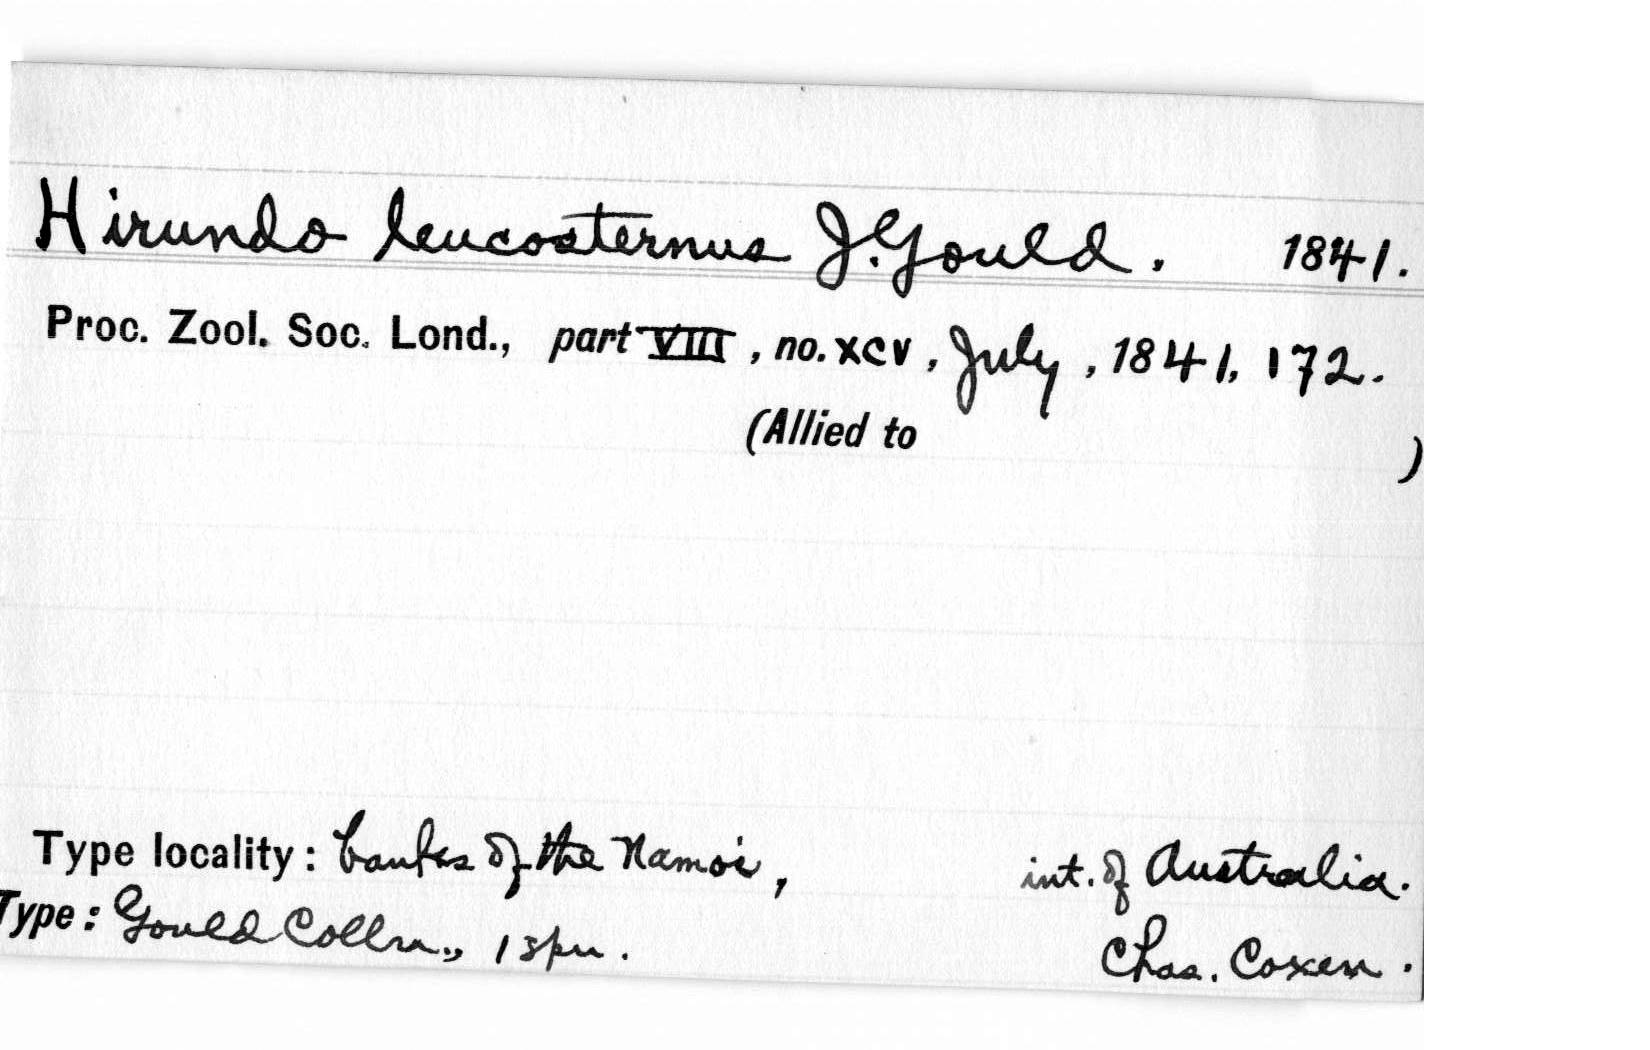 Hirundo leucosternus J. Gould. 1841.
Proc. Zool. Soc. Lond., part VIII, no. XCV, July, 1841, 172.
(Allied to )
Type locality: banks of the Namoi, int. of Australia.
Type: Gould Colln., 1 spn. Chas. Coxen.